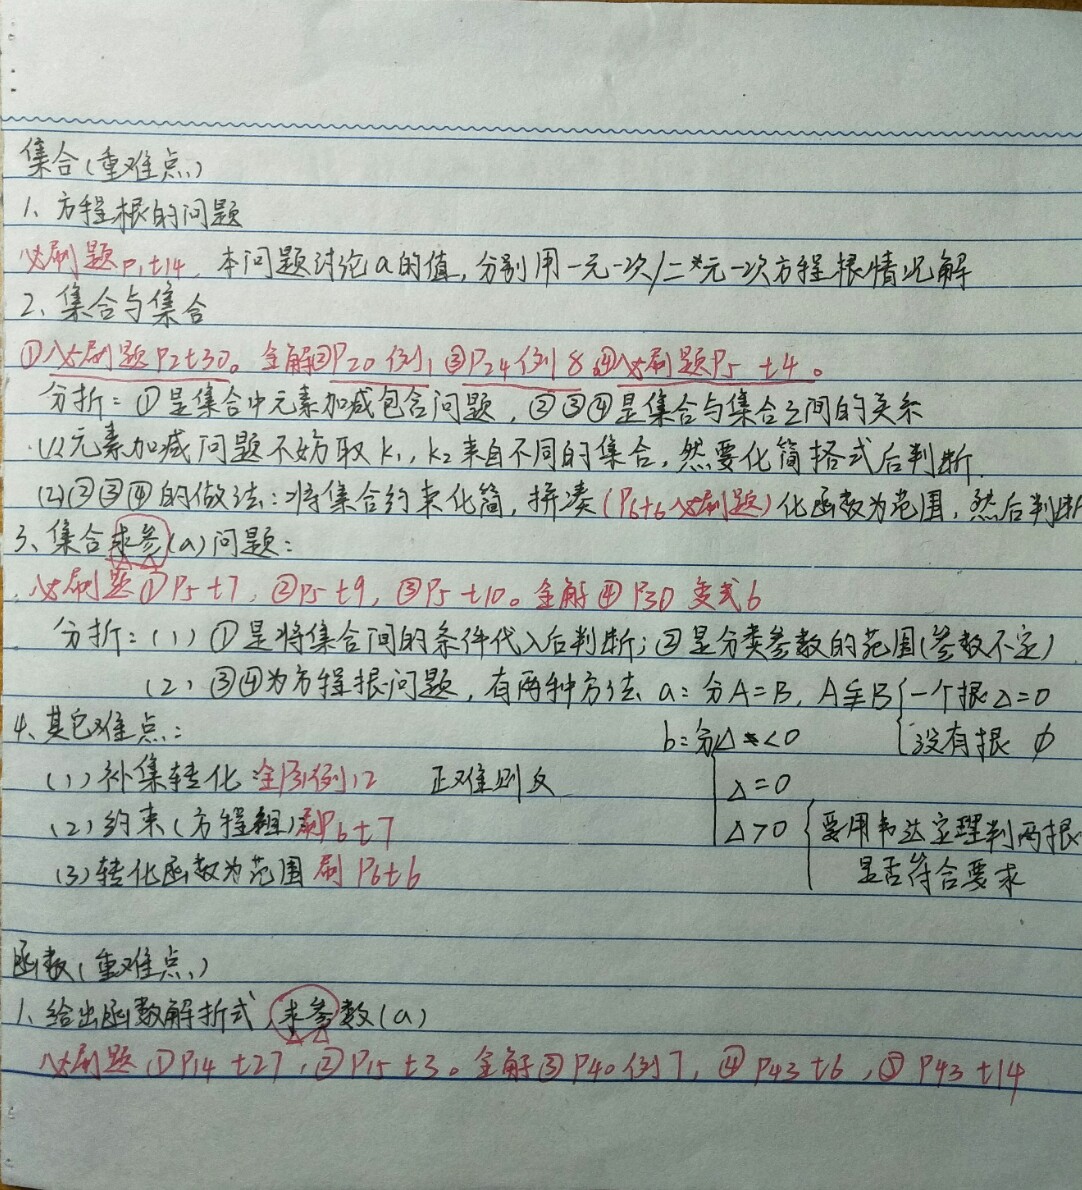 集合(重难点)
1、方程根的问题
必刷题P1t14,本问题讨论a的值,分别用一元一次/二元一次方程根情况解
2、集合与集合
①必刷题P2t30。全解②P20例1③P24例8④必刷题P5 t4。
分折:①是集合中元素加减包含问题,②③④是集合与集合之间的关系
(1)元素加减问题不妨取k₁,k₂来自不同的集合,然要化简格式后判断.
(2)②③④的做法:将集合约束化简,拼凑(P6t6必刷题)化函数为范围,然后判断
3、集合求参(a)问题:
必刷题①P5t7,②P5t9,③P5t10。全解④P30变式6
分折:(1)①是将集合间的条件代入后判断;②是分类参数的范围(参数不定)
(2)③④为方程根问题,有两种方法 a:分A=B,A⫋B{一个根Δ=0
没有根 ∅
4、其它难点:
b:分Δ<0
(1)补集转化 例12 正难则反
Δ=0
(2)约束(方程组)刷P6t7
Δ>0{要用韦达定理判两根
(3)转化函数为范围 刷P6t6
是否符合要求
函数(重难点)
1、给出函数解折式,求参数(a)
必刷题①P14t27,②P15t3。全解③P40例7,④P43t6,⑤P43t14